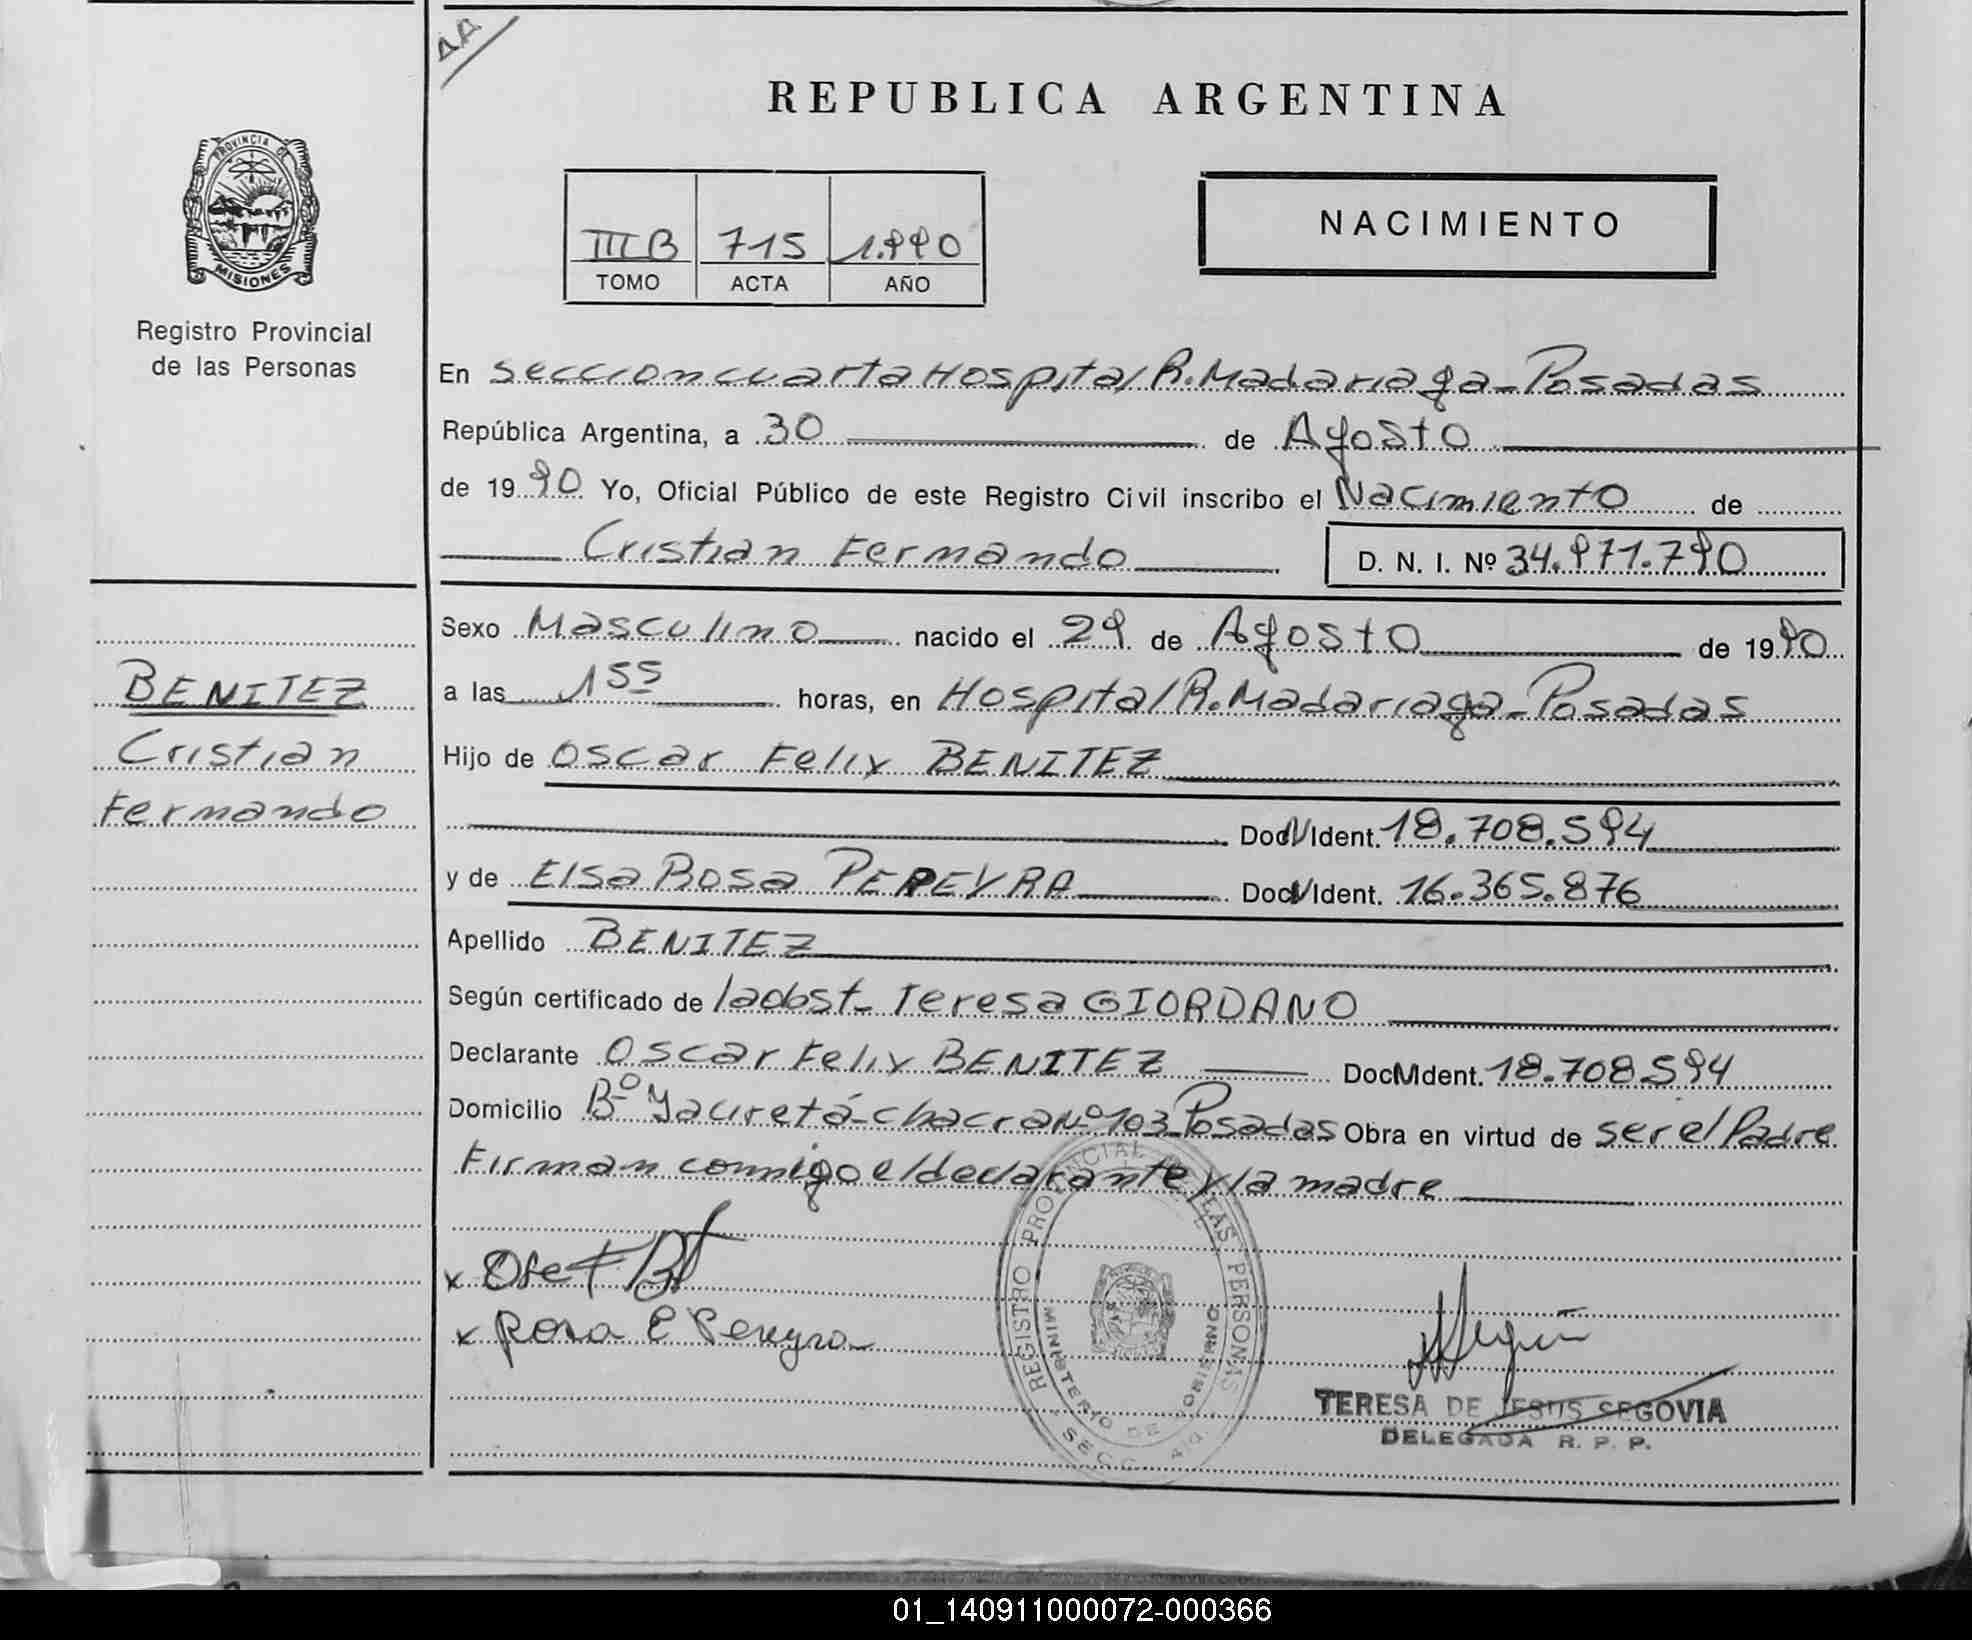 AA
REPUBLICA ARGENTINA
PROVINCIA DE
MISIONES
Registro Provincial
de las Personas
III B 715 1.990
TOMO ACTA AÑO
NACIMIENTO
En Seccion cuarta Hospital R. Madariaga - Posadas
República Argentina, a 30 de Agosto
de 1990 Yo, Oficial Público de este Registro Civil inscribo el Nacimiento de
Cristian Fernando D. N. I. Nº 34.971.790
Sexo Masculino nacido el 29 de Agosto de 1990
a las 1 55 horas, en Hospital R. Madariaga - Posadas
Hijo de Oscar Felix BENITEZ
Doc N Ident. 18.708.594
y de Elsa Rosa PEREYRA Doc N Ident. 16.365.876
Apellido BENITEZ
Según certificado de la obst. Teresa GIORDANO
Declarante Oscar Felix BENITEZ Doc N Ident. 18.708.594
Domicilio Bº Yacireta - chacra Nº 103 - Posadas Obra en virtud de ser el Padre
Firman conmigo el declarante y la madre
BENITEZ
Cristian
Fernando
x
x Rosa E Pereyra
REGISTRO PROVINCIAL DE LAS PERSONAS
MINISTERIO DE GOBIERNO
SECC. 4ta.
TERESA DE JESUS SEGOVIA
DELEGADA R. P. P.
01_140911000072-000366